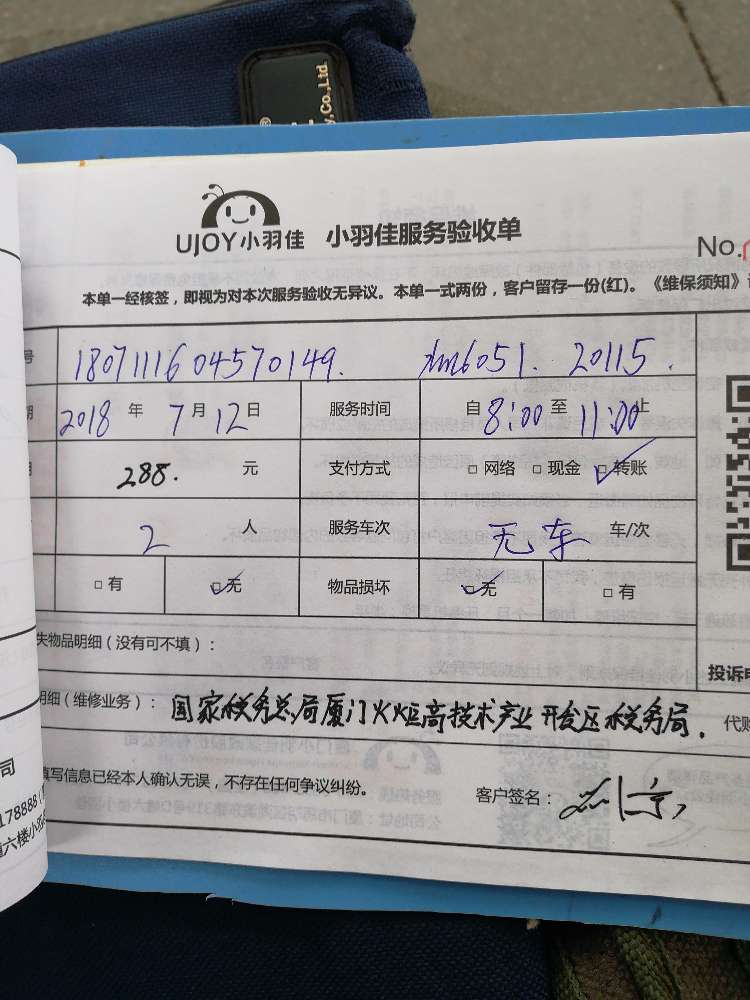 y,Co.,Ltd.
®
UJOY小羽佳 小羽佳服务验收单
No.
本单一经核签，即视为对本次服务验收无异议。本单一式两份，客户留存一份(红)。《维保须知》
号 1807111604570149. xm6051. 20115.
2018 年 7 月 12 日 服务时间 自 8:00 至 11:00 止
288. 元 支付方式 □ 网络 □ 现金 ☑ 转账
2 人 服务车次 无车 车/次
□ 有 ☑ 无 物品损坏 ☑ 无 □ 有
失物品明细（没有可不填）：
投诉电
明细（维修业务）： 国家税务总局厦门火炬高技术产业开发区税务局. 代购
填写信息已经本人确认无误，不存在任何争议纠纷。
客户签名：
司
178888
六楼小羽